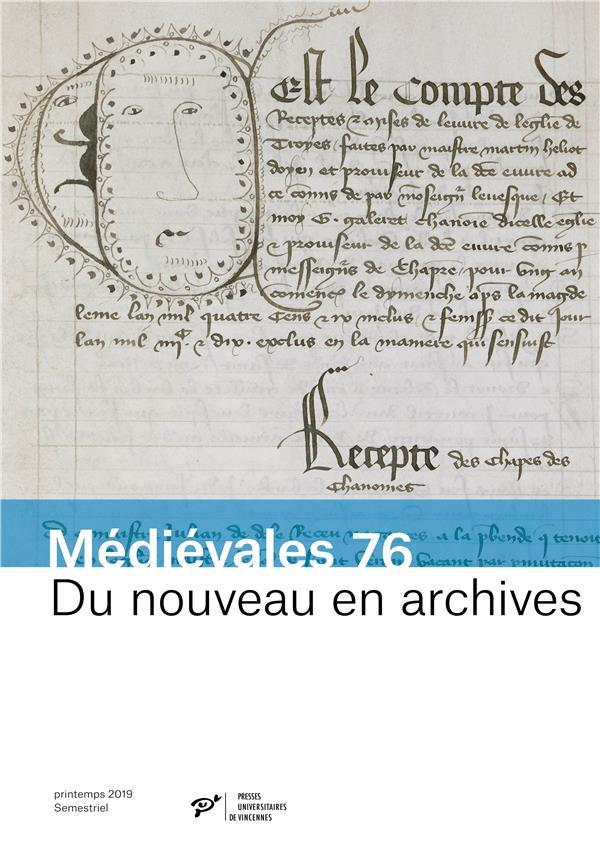 Cest le compte des
Receptes & mises de leuvre de leglise de
Troyes faites par maistre martin heliot
doyen et prouiseur de la dce euure ad
ce comis de par moseignr leuesque / Et
moy G. galeret chanoie dicelle eglise
& prouiseur de la dce euure comis p
messeigrs de Chapre / pour Ung an
comence le dymenche aps la magde
leme lan mil quatre Cens & ix inclus & feniss ce dit Jour
lan mil iiijc & dix. exclus en la maniere qui sensuist
Recepte des Chapes des
Chanoines
a la pbende q tenoit
vacant par pmutacon
Médiévales 76
Du nouveau en archives
printemps 2019
Semestriel
PRESSES
UNIVERSITAIRES
DE VINCENNES